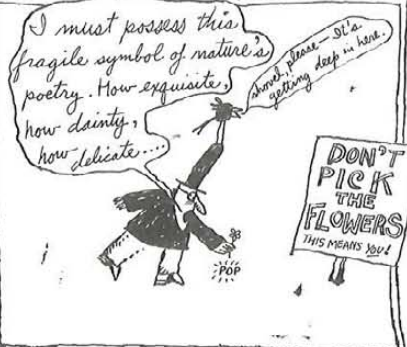 I must possess this
fragile symbol of nature's
poetry. How exquisite,
how dainty,
how delicate....
shovel, please— It's
getting deep in here.
DON'T
PICK
THE
FLOWERS
THIS MEANS YOU!
POP